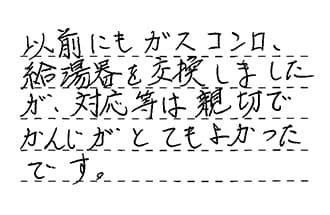 以前にもガスコンロ、
給湯器を交換しました
が、対応等は親切で
かんじがとてもよかった
です。